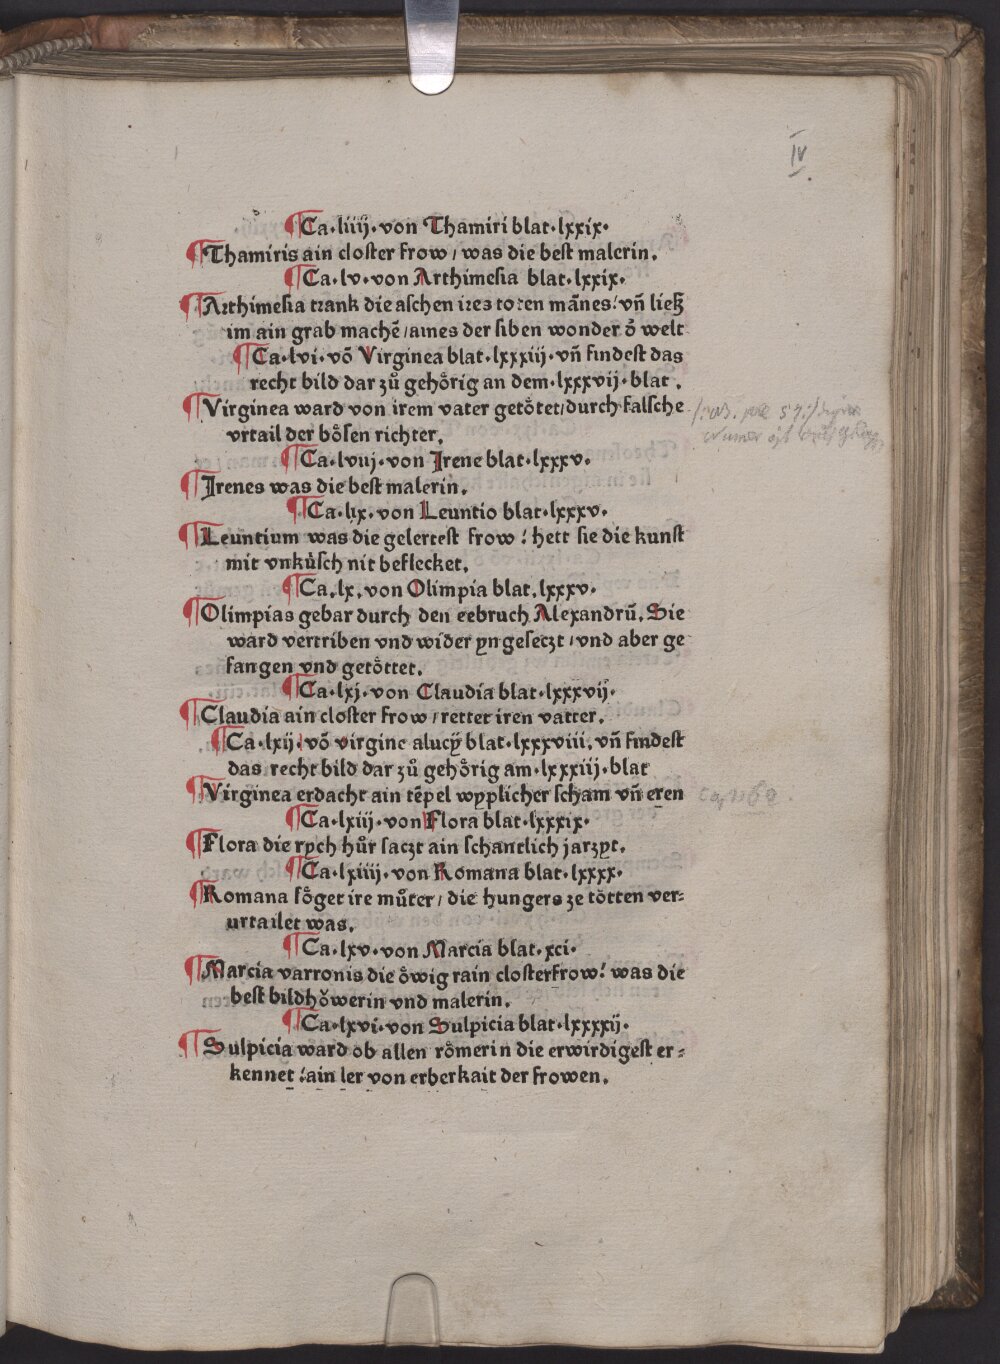 IV
¶Ca.liiij.von Thamiri blat.lxxix.
¶Thamiris ain closter frow / was die best malerin.
¶Ca.lv.von Arthimesia blat.lxxix.
¶Arthimesia trank die aschen ires toten mãnes: vñ ließ
im ain grab machẽ / aines der siben wonder ð welt
¶Ca.lvi.võ Virginea blat.lxxxiij.vñ findest das
recht bild dar zů gehoͤrig an dem.lxxxvij.blat.
¶Virginea ward von irem vater getoͤtet / durch falsche
vrtail der boͤsen richter.
¶Ca.lviij.von Irene blat.lxxxv.
¶Irenes was die best malerin.
¶Ca.lix.von Leuntio blat.lxxxv.
¶Leuntium was die gelertest frow : hett sie die kunst
mit vnkuͤsch nit beflecket.
¶Ca.lx.von Olimpia blat.lxxxv.
¶Olimpias gebar durch den eebruch Alexandrũ. Sie
ward vertriben vnd wider yngeseczt / vnd aber ge
fangen vnd getoͤttet.
¶Ca.lxj.von Claudia blat.lxxxvij.
¶Claudia ain closter frow / rettet iren vatter.
¶Ca.lxij.võ virgine alucÿ blat.lxxxviii.vñ findest
das recht bild dar zů gehoͤrig am.lxxxiij.blat
¶Virginea erdacht ain tẽpel wyplicher scham vñ eren
¶Ca.lxiij.von Flora blat.lxxxix.
¶Flora die rych hůr saczt ain schantlich jarzyt.
¶Ca.lxiiij.von Romana blat.lxxxx.
¶Romana soͤget ire můter / die hungers ze toͤtten ver=
urtailet was.
¶Ca.lxv.von Marcia blat.xci.
¶Marcia varronis die oͤwig rain closterfrow : was die
best bildhoͤwerin vnd malerin.
¶Ca.lxvi.von Sulpicia blat.lxxxxij.
¶Sulpicia ward ob allen roͤmerin die erwirdigest er=
kennet : ain ler von erberkait der frowen.